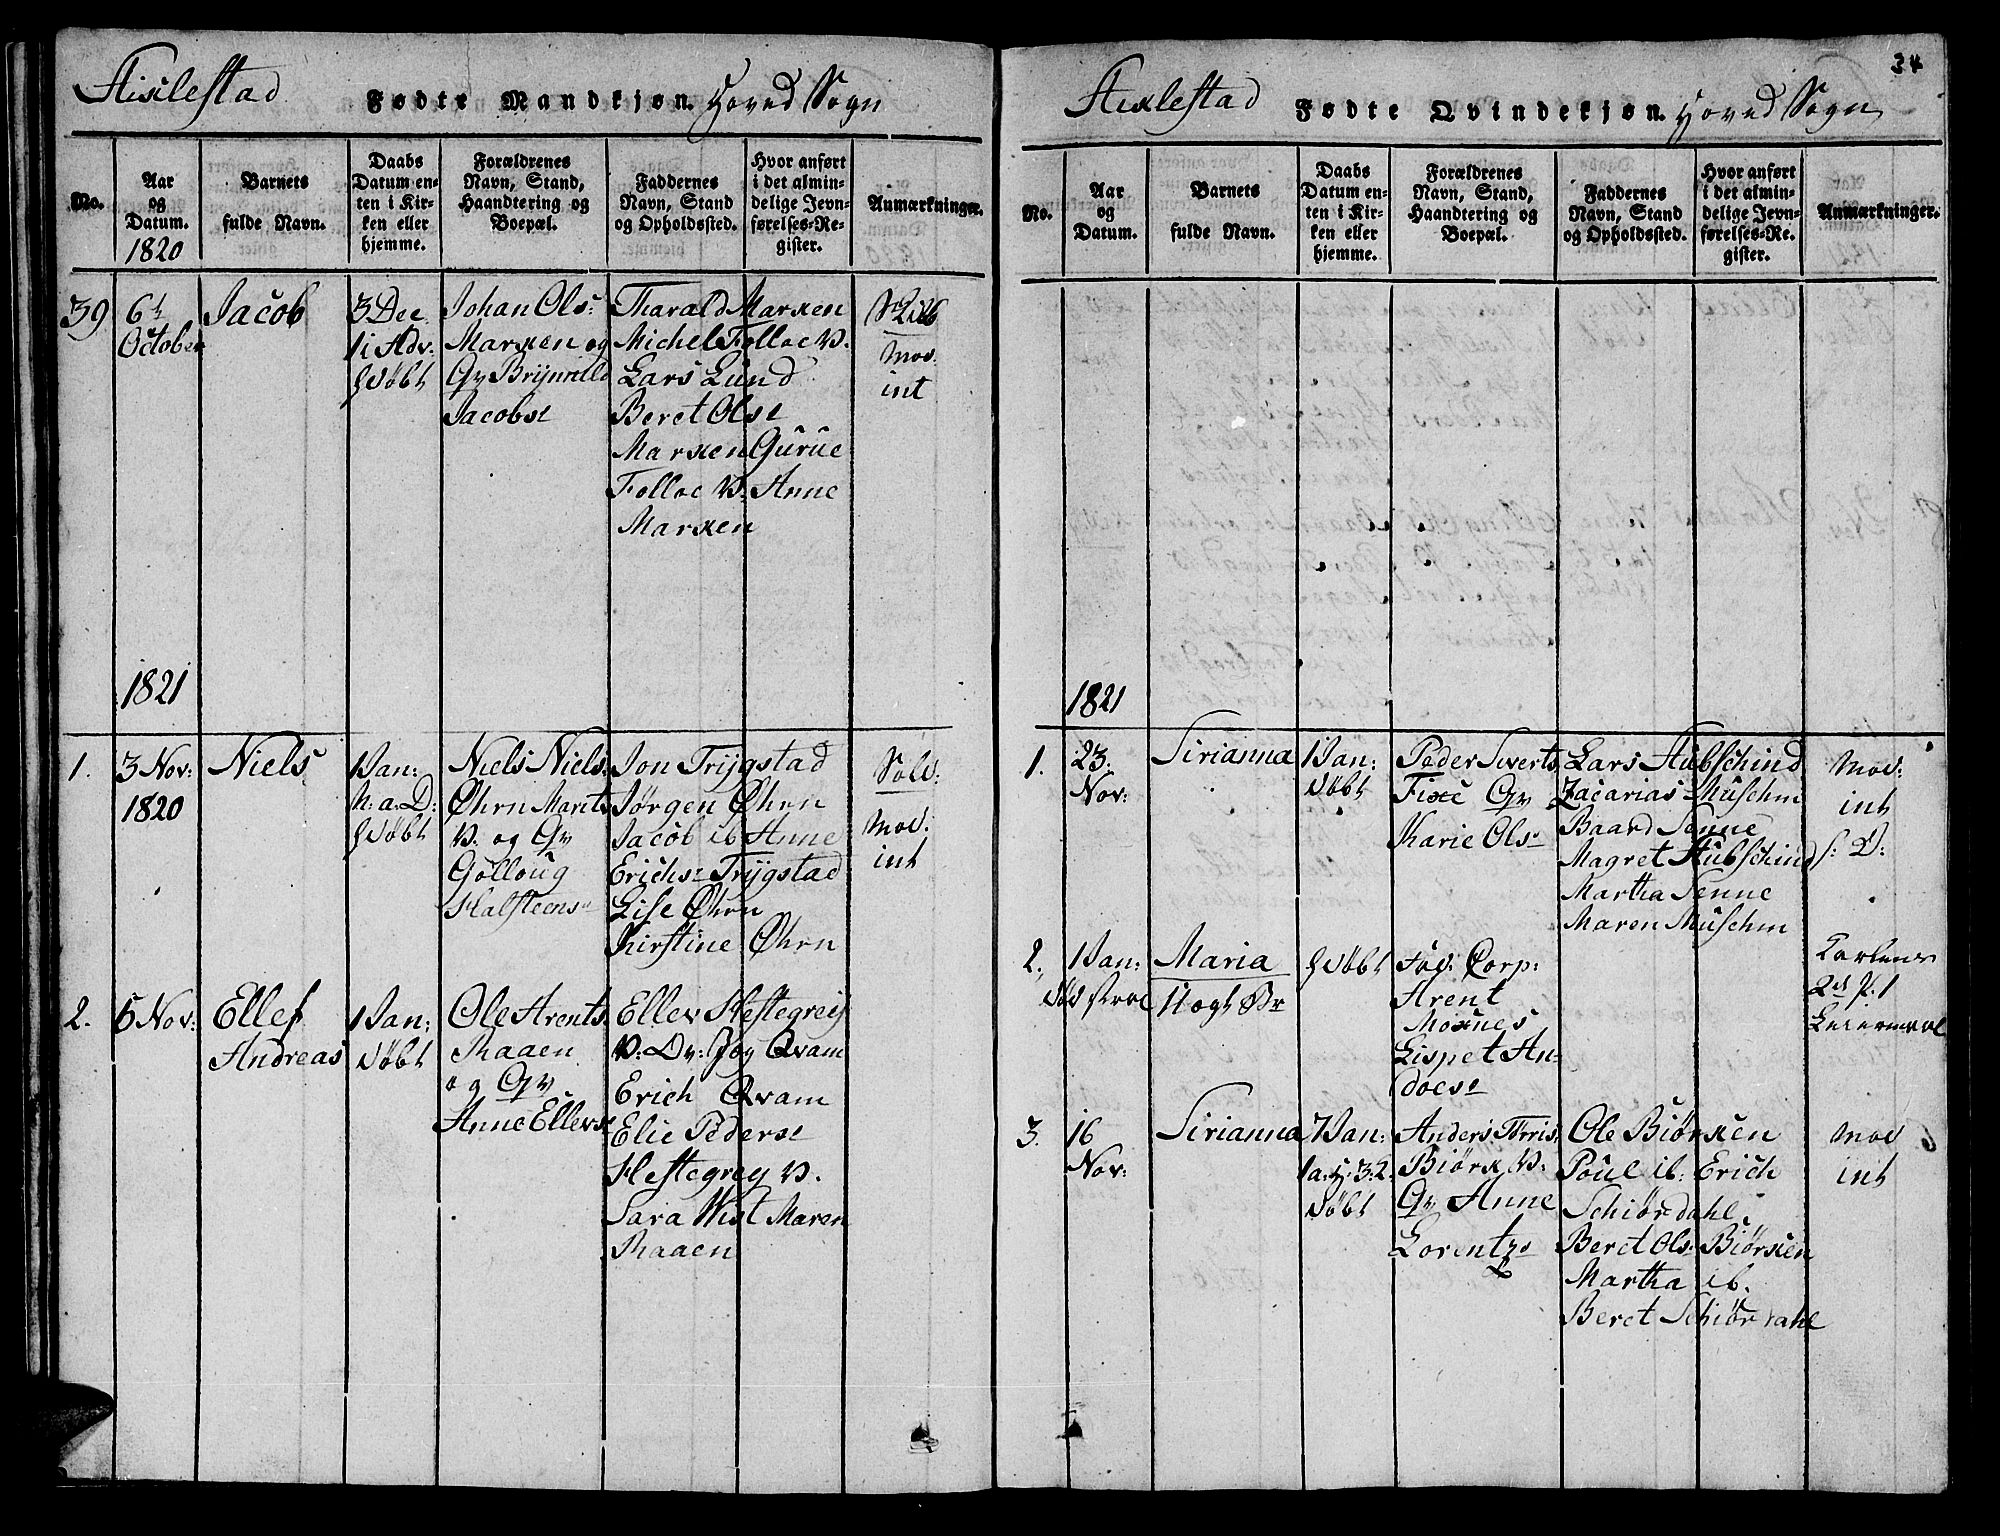 Stixlestad Fødte Mandkjøn. Hoved Sogn
No.
Aar og Datum.
1820
Barnets fulde Navn.
Daabs Datum enten i Kirken eller hjemme.
Forældrenes Navn, Stand, Haandtering og Boepæl.
Faddernes Navn, Stand og Opholdssted.
Hvor anført i det almindelige Jevnførelses-Register.
Anmærkninger.
39
6t
October
Jacob
3 Dec
1 i Adv:
døbt
Johan Ols:
Marxen og
Gv Brynnild
Jacobsd
Tharald Marxen
Michel Folloe V.
Lars Lund
Beret Olsd
Marxen Gurue
Folloe V. Anne
Marxen
mod.
int
1821
1.
3 Nov:
1820
Niels
1 Jan:
N: a: D:
døbt
Niels Niels:
Øhrn Marits
V. og Gv
Gollaug
Halsteens
Jon Trygstad
Jørgen Øhrn
Jacob ib Anne
Erichsd Trygstad
Lise Øhrn
Kirstine Øhrn
Sold:
mod.
int
2.
5 Nov:
Ellef
Andreas
1 Jan:
døbt
Ole Arents
Raaen
og Gv
Anne Ellevs
Ellev Hestegrey
V: Qvam
Erich Qvam
Elie Pedersd
Hestegrey V.
Sara Wist Maren
Raaen
34
Stixlestad Fødte Qvindekjøn. Hoved Sogn
No.
Aar og Datum.
Barnets fulde Navn.
Daabs Datum enten i Kirken eller hjemme.
Forældrenes Navn, Stand, Haandtering og Boepæl.
Faddernes Navn, Stand og Opholdssted.
Hvor anført i det almindelige Jevnførelses-Register.
Anmærkninger.
1821
1.
23.
Nov:
Sirianna
1 Jan:
døbt
Peder Siverts
Fixe Gv
Karie Ols
Lars Stubschind
Zacarias Muschm
Baard Senne
Magret Stubschind
Martha Senne
Maren Muschm
mod:
int
2.
1 Jan:
Maria
døbt
Corp:
Arent
Moxnes
Lispet An-
doesd
Leiermaal
3.
16
Nov:
Sirianna
7 Jan:
døbt
Anders Torris
Biørx V:
Gv Anne
Lorentzd
Ole Biørxen
Poul ib: Erich
Schiørdahl
Beret Ols: Biørxen
Martha ib.
Beret Schiørdahl
mod
int